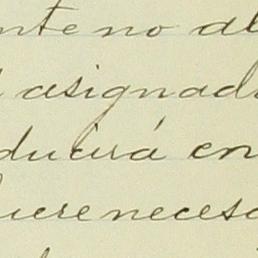 nte no al
asignad
ducirá en
uere necesa